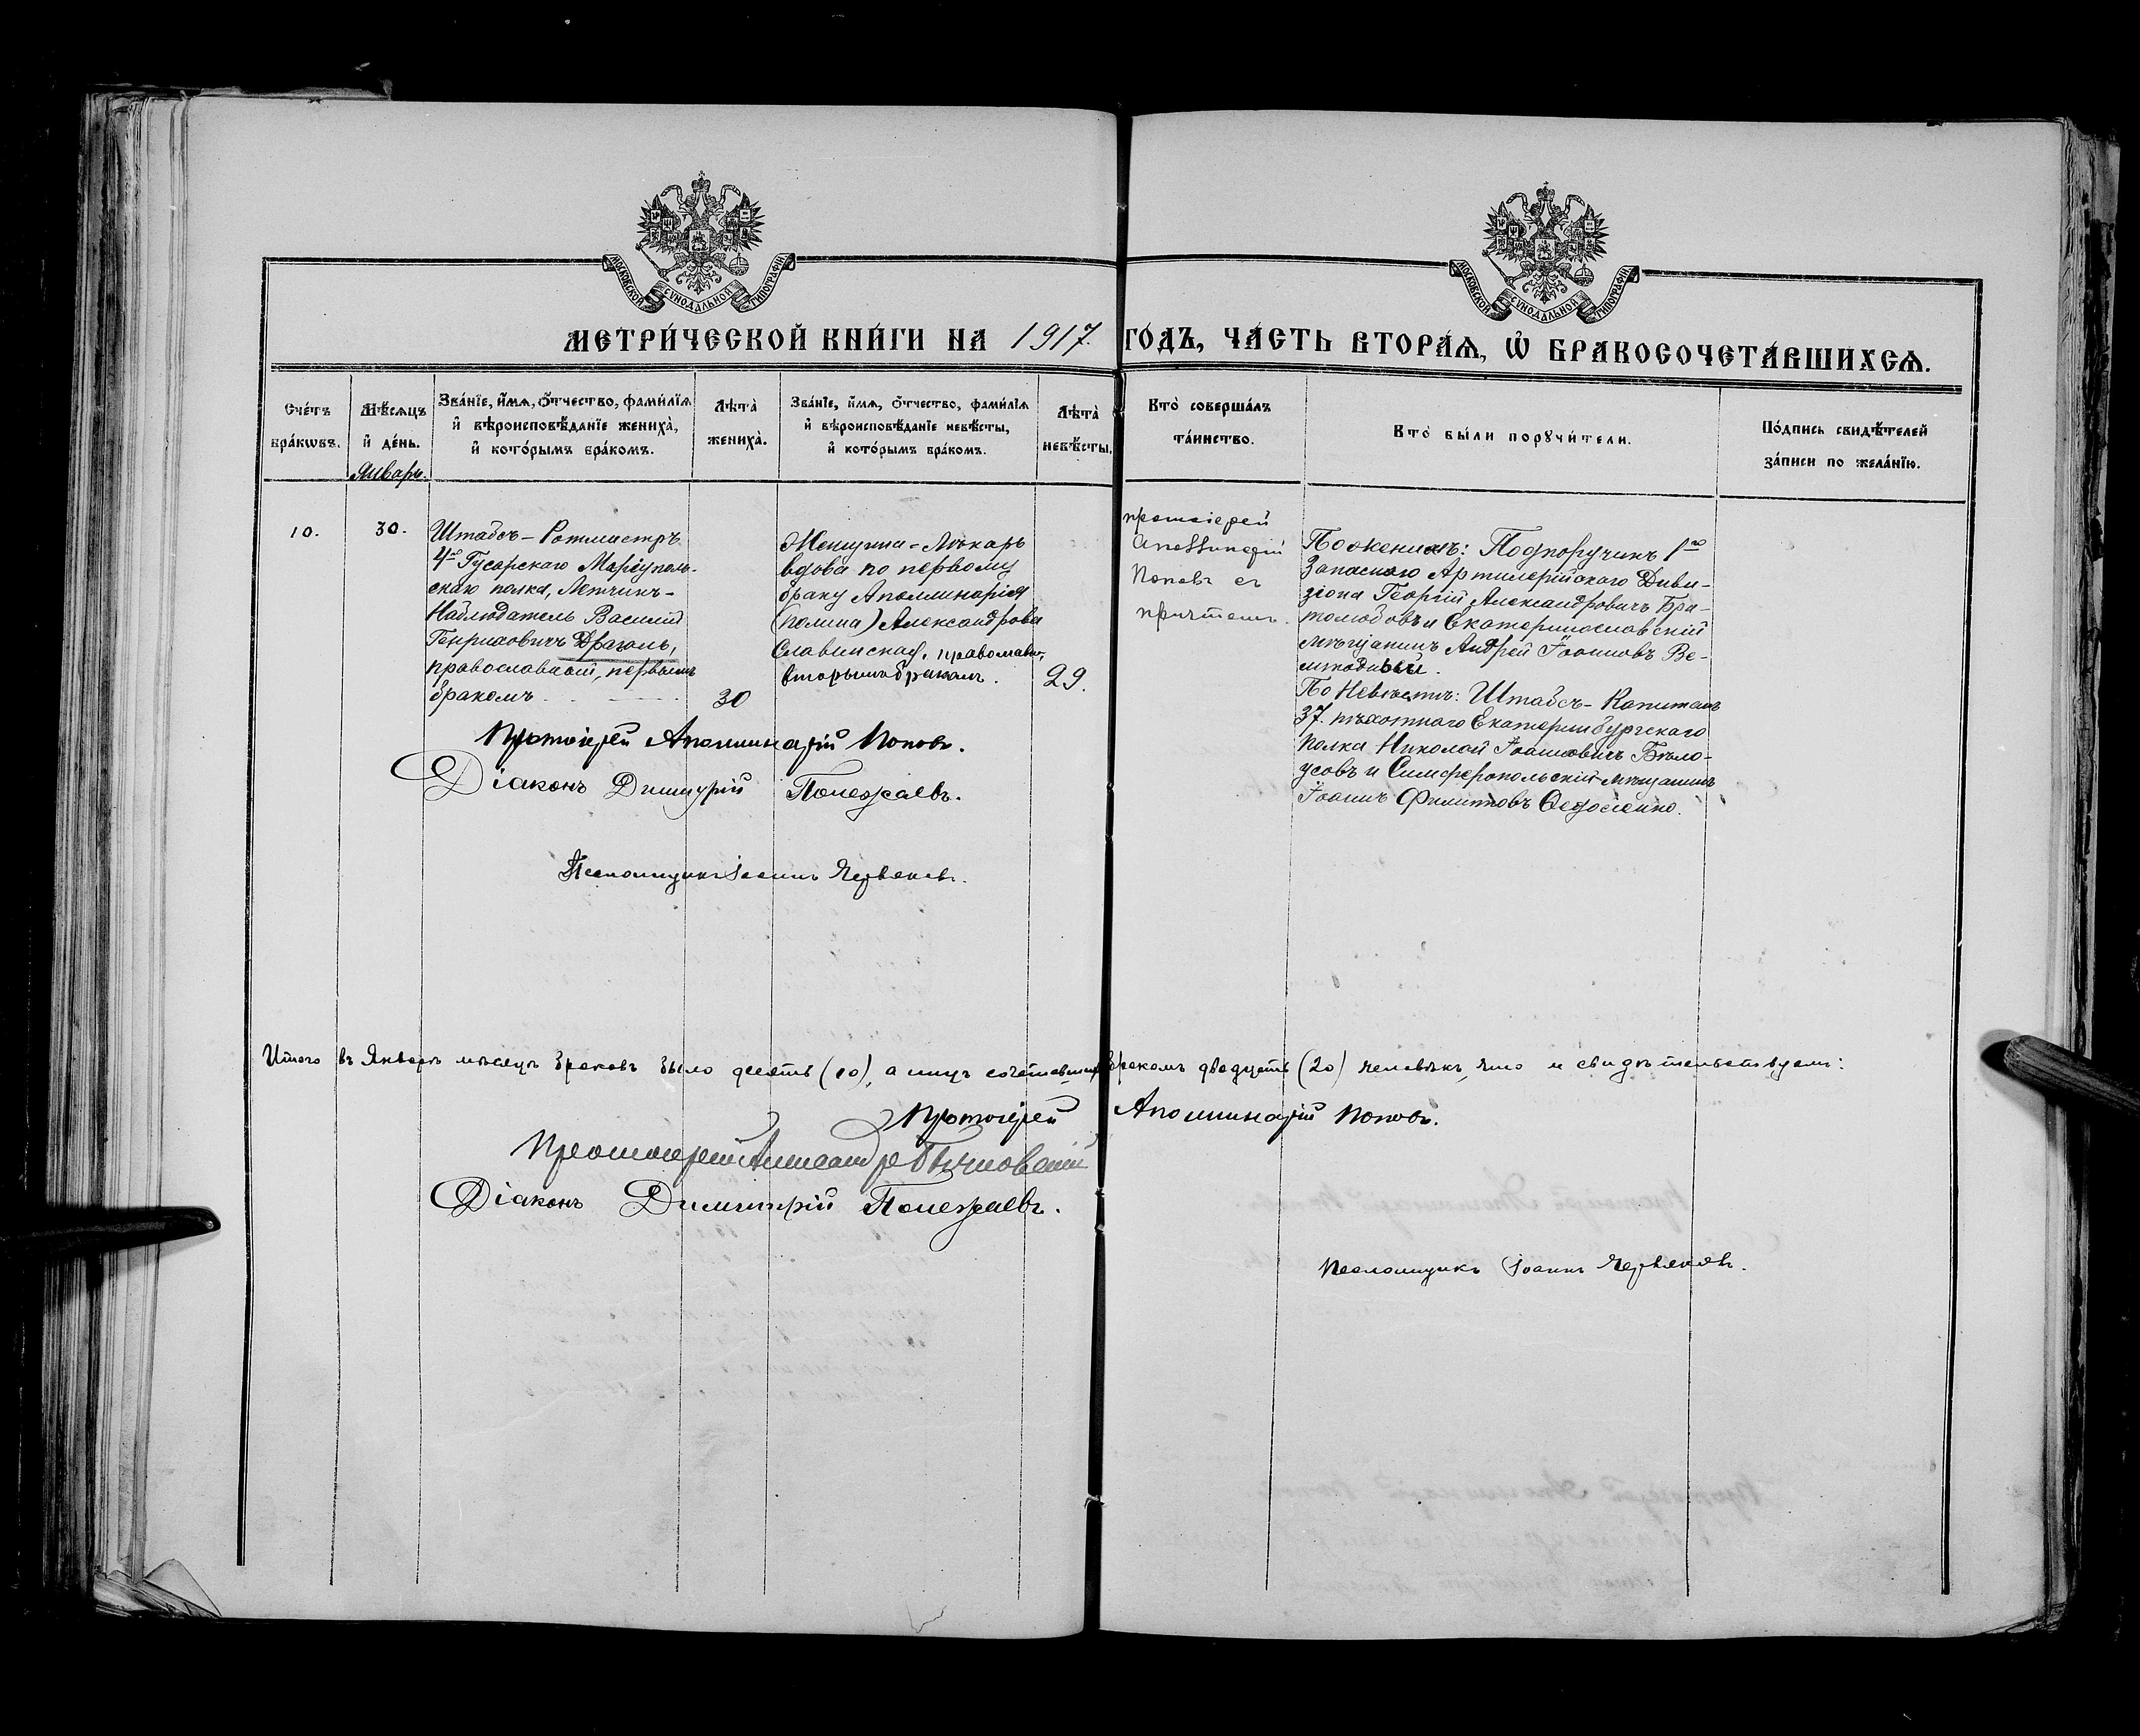 МОСКОВСКОЙ СѴНОДАЛЬНОЙ ТИПОГРАФІИ
МОСКОВСКОЙ СѴНОДАЛЬНОЙ ТИПОГРАФІИ
МЕТРИ́ЧЕСКОЙ КНИ́ГИ НА 1917. ГО́ДЪ, ЧА́СТЬ ВТОРА́Ѧ, Ѡ҆ БРАКОСОЧЕТА́ВШИХСѦ.
Сче́тъ
бра́кѡвъ.
Мѣ́сѧцъ
и҆ де́нь.
Январь.
Зва́нїе, и҆́мѧ, ѻ҆́тчество, фами́лїѧ
и҆ вѣроисповѣ́данїе жениха̀,
и҆ кото́рымъ бра́комъ.
Лѣта̀
жениха̀.
Зва́нїе, и҆́мѧ, ѻ҆́тчество, фами́лїѧ
и҆ вѣроисповѣ́данїе невѣ́сты,
и҆ кото́рымъ бра́комъ.
Лѣта̀
невѣ́сты.
Кто̀ соверша́лъ
та́инство.
Кто̀ бы́ли порꙋчи́тели.
По́дпись свидѣ́телей
за́писи по жела́нїю.
10.
30.
Штабсъ-Ротмистръ
4го Гусарскаго Маріуполь-
скаго полка, Летчикъ-
Наблюдатель Василій
Генриховичъ Драголь,
православный, первымъ
бракомъ
30
Женщина-Лѣкарь
вдова по первому
браку Аполлинарія
(полина) Александрова
Славинская, православн.,
вторымъ бракомъ.
29.
протоіерей
Аполлинарій
Поповъ съ
причтомъ.
По женихѣ: Подпоручикъ 1го
Запаснаго Артилерійскаго Диви-
зіона Георгій Александровичъ Бра-
толюбовъ и Екатеринославскій
мѣщанинъ Андрей Іоанновъ Ве-
По Невѣстѣ: Штабсъ-Капитанъ
37. пѣхотнаго Екатеринбургскаго
полка Николай Іоанновичъ Бѣло-
усовъ и Симферопольскій мѣщанинъ
Іоаннъ Филипповъ Федосіенко.
Протоіерей Аполлинарій Поповъ.
Діаконъ Димитрій Полежаевъ.
Псаломщикъ Іоаннъ Червяковъ.
Итого въ Январѣ мѣсяцѣ браковъ было десять (10), а лицъ сочетавшихся бракомъ двадцать (20) человѣкъ, что и свидѣтельствуемъ:
Протоіерей Аполлинарій Поповъ.
Протоіерей Александръ
Діаконъ Димитрій Полежаевъ.
Псаломщикъ Іоаннъ Червяковъ.